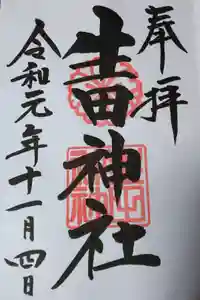 奉拝
生田神社
令和元年十一月四日